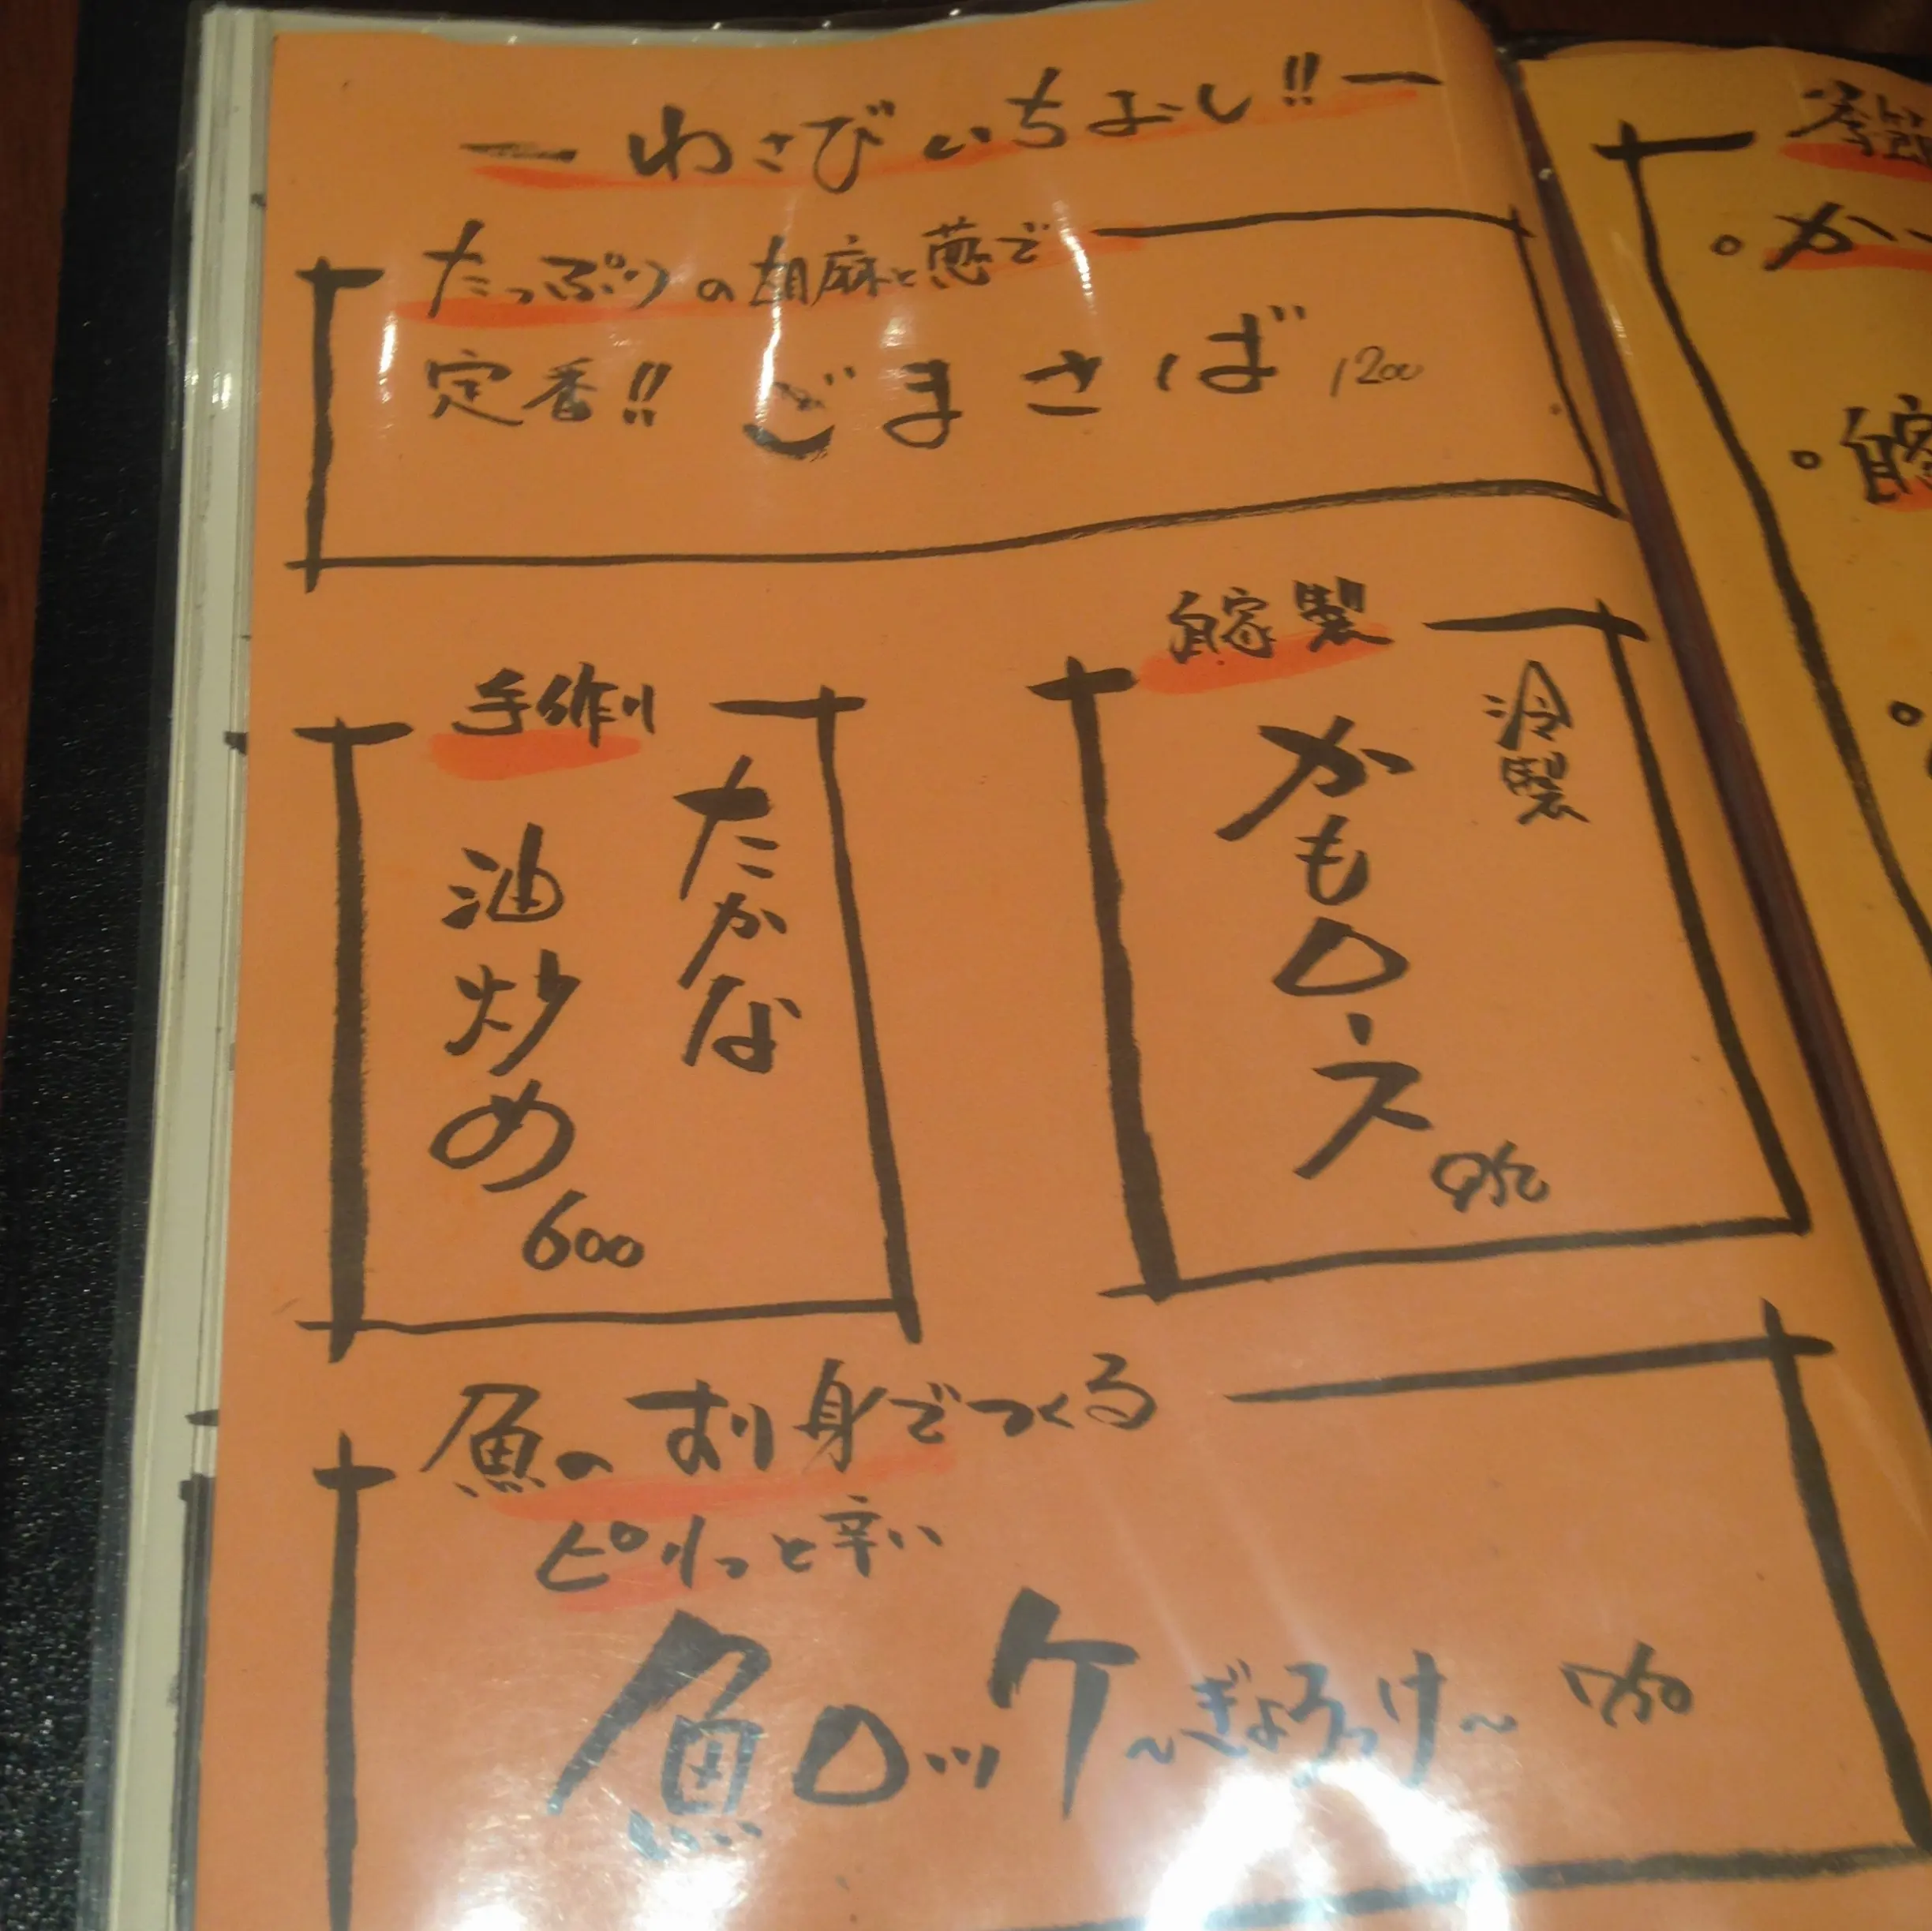 わさびいちおし!!
たっぷりの胡麻と葱で
定番!! ごまさば 1200
手作り
たかな
油炒め
600
自家製
冷製
かもロース
魚のすり身でつくる
ピリっと辛い
魚ロッケ ～ぎょろっけ～
か
自家